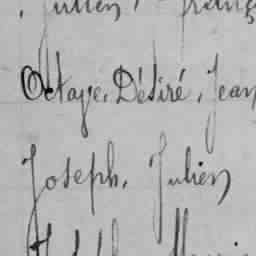 Julien,
Octave, Désiré, Jean
Joseph, Julien